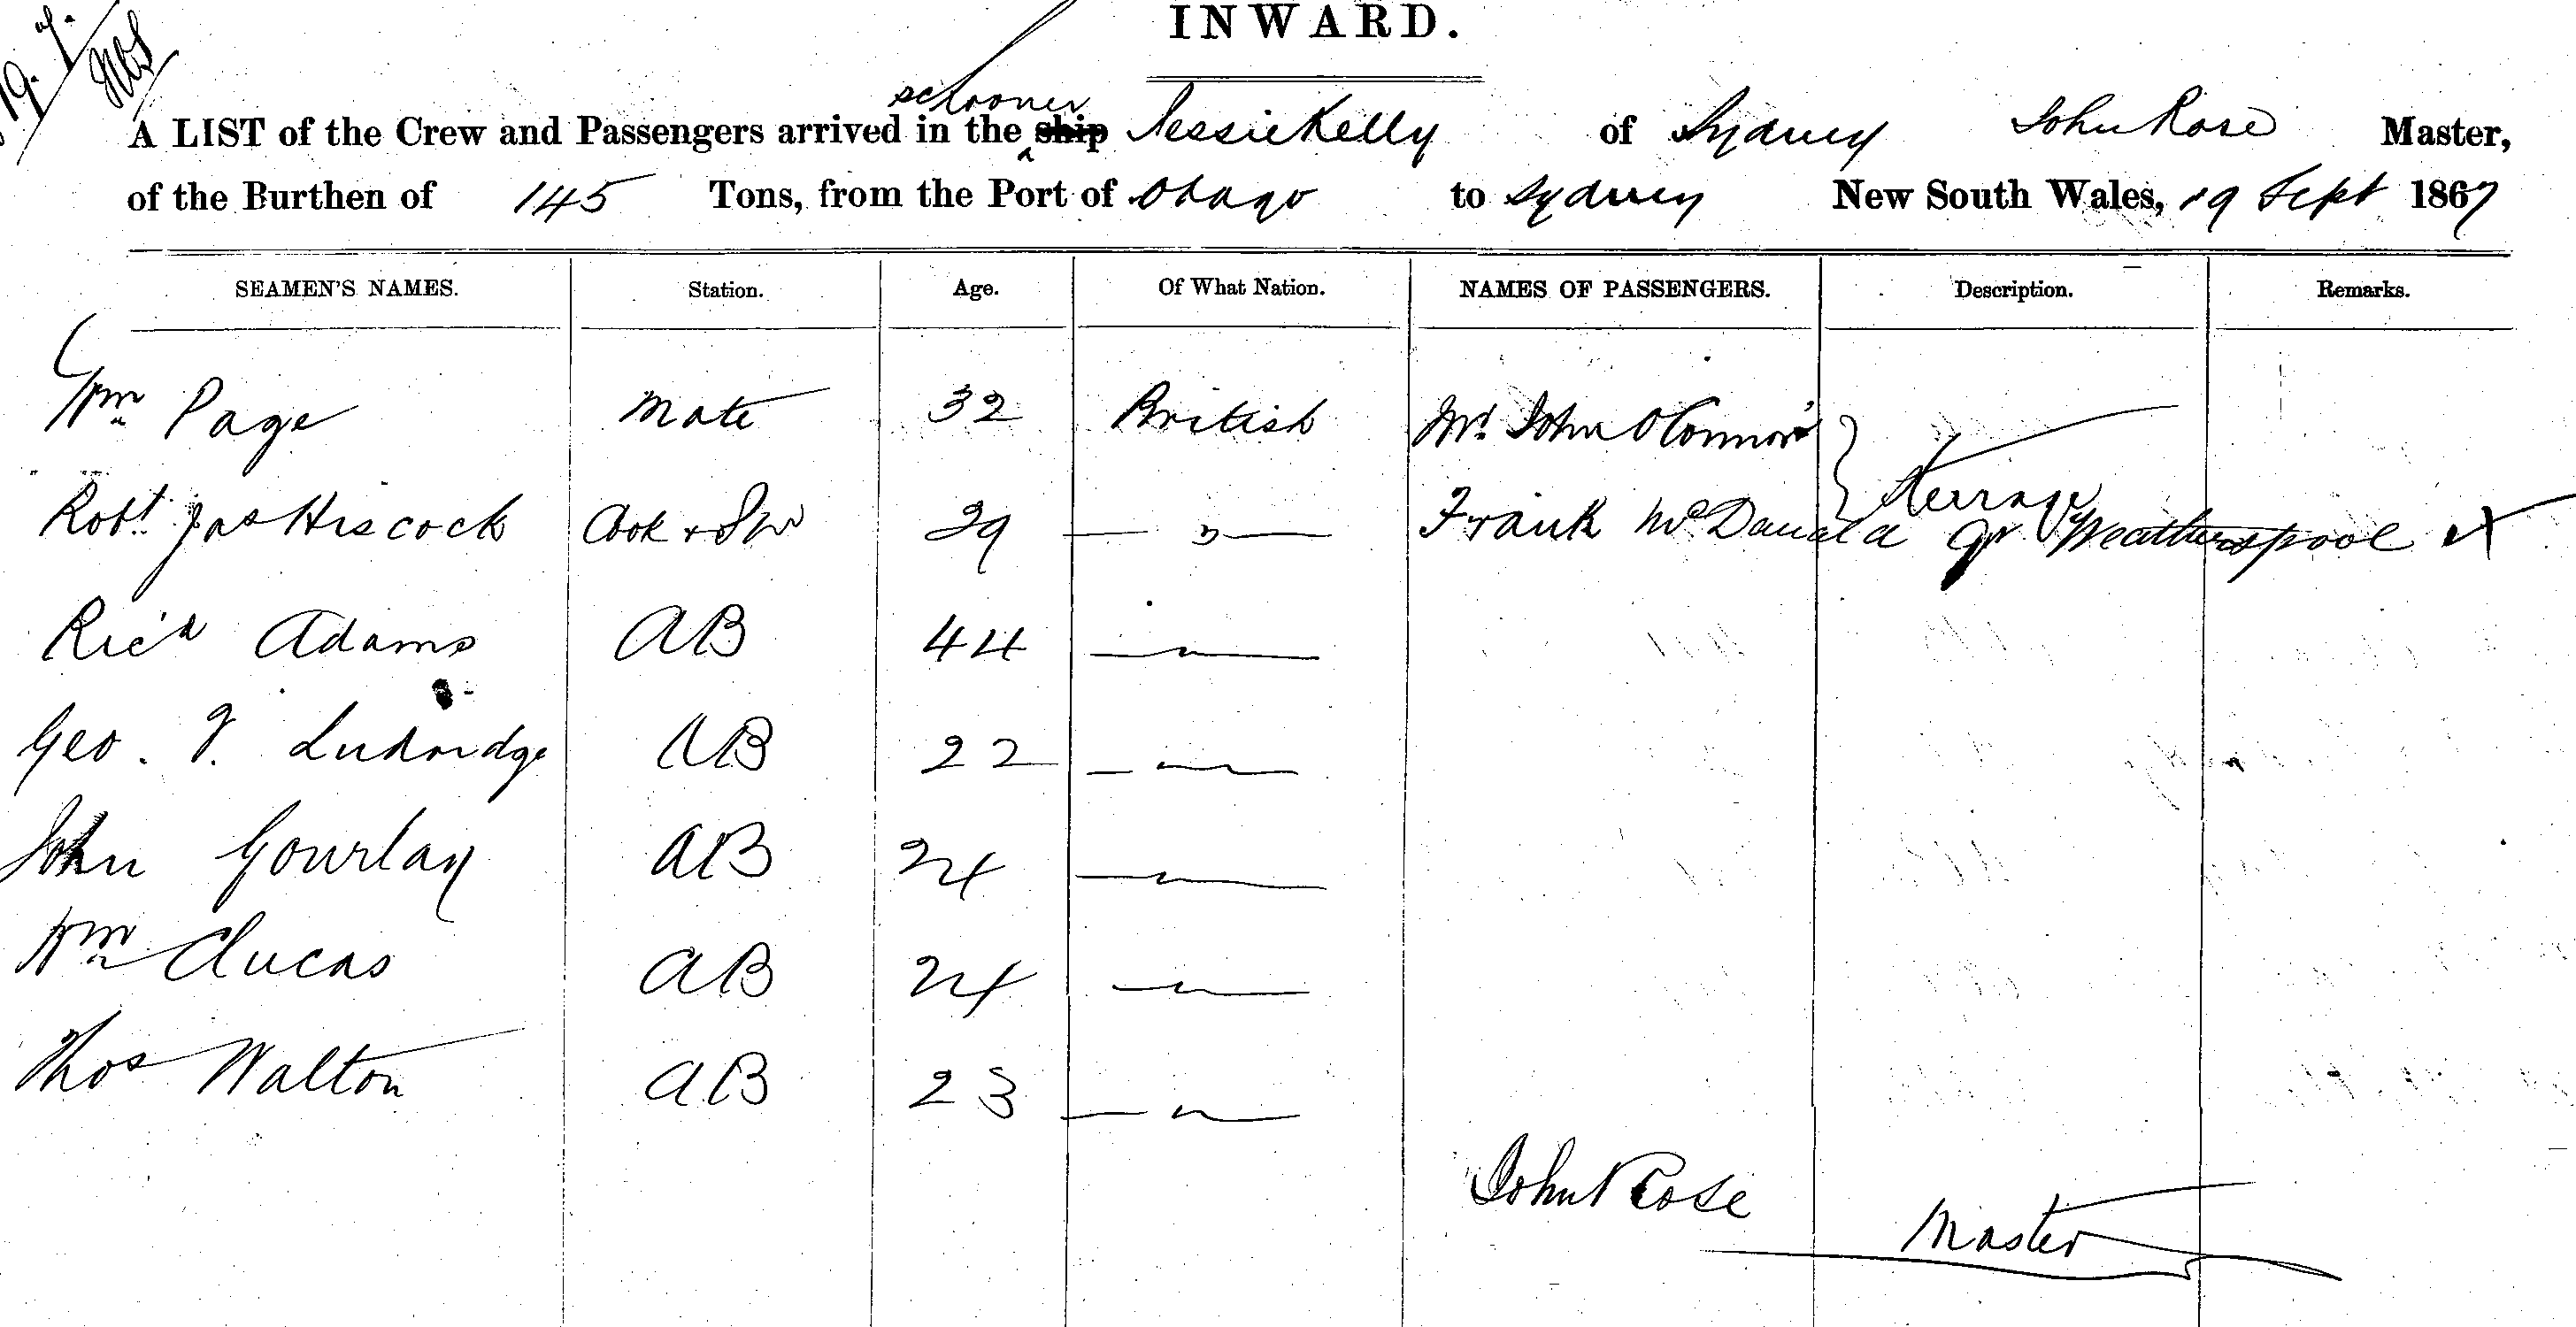 INWARD.
schooner
A LIST of the Crew and Passengers arrived in the ship Jessie Kelly of Sydney John Rose Master,
of the Burthen of 145 Tons, from the Port of Otago to Sydney New South Wales, 19 Sept 1867
SEAMEN'S NAMES. Station. Age. Of What Nation. NAMES OF PASSENGERS. Description. Remarks.
Wm Page Mate 32 British Mr. John O'Connor
Robt. Jas Hiscock Cook + Stwd 29 — " — Frank McDonald or Weatherspool X
Ricd Adams AB 44 — " —
Geo. AB 22 — " —
John Gourlay AB 24 — " —
Wm Clucas AB 24 — " —
Thos Walton AB 23 — " —
John Rose
Master